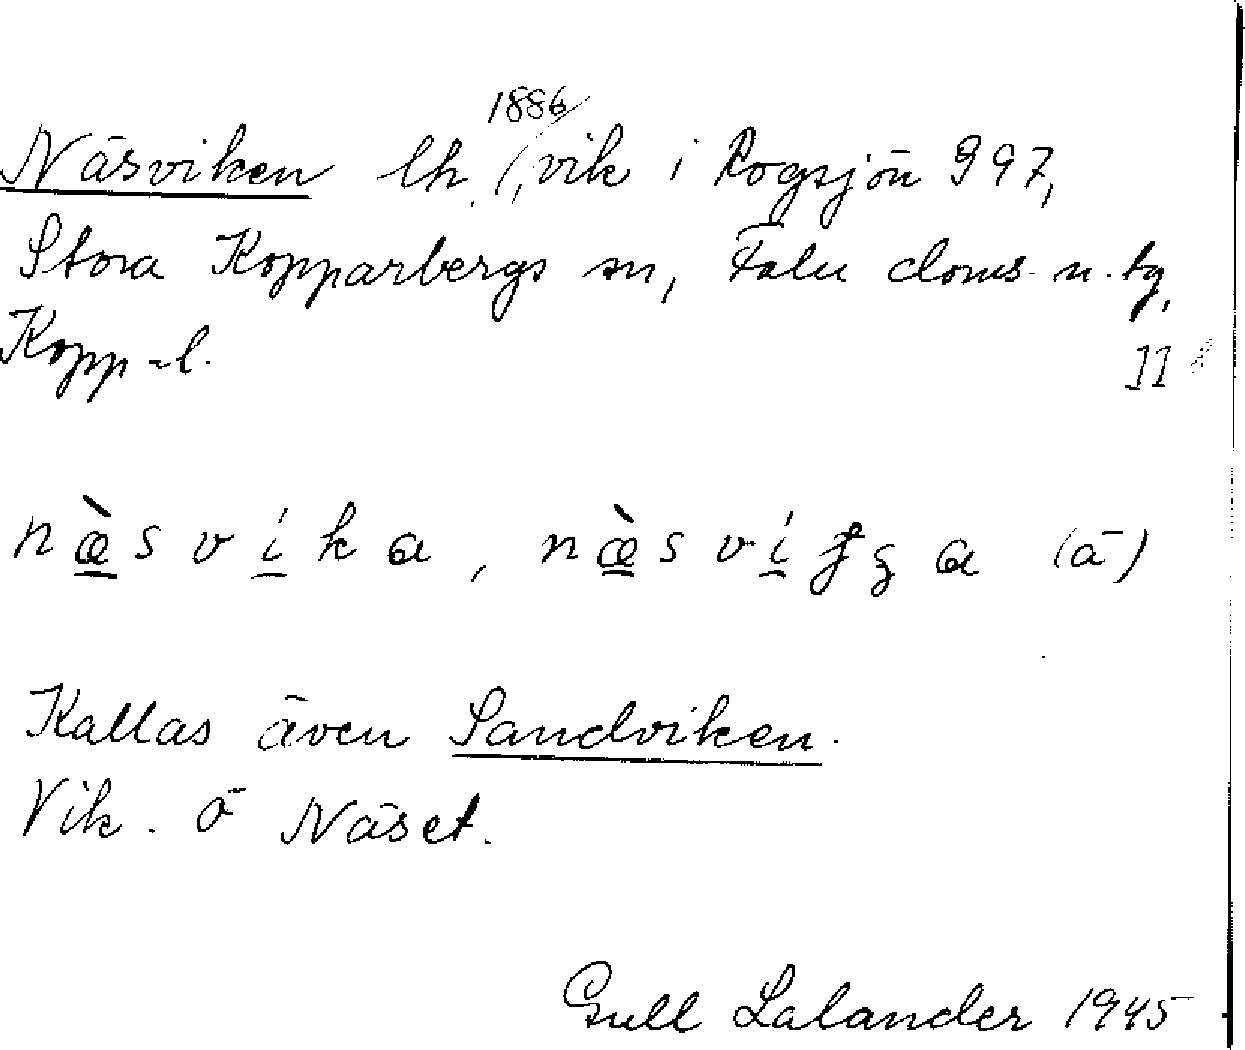 Näsviken lh. 1886, vik i Rogsjön 997,
Stora Kopparbergs sn, Falu doms. n. tg,
Kopp-l. II
næ̀svíka, næ̀svíʒa (ā)
Kallas även Sandviken.
Vik. Ö Näset.
Gull Lalander 1945